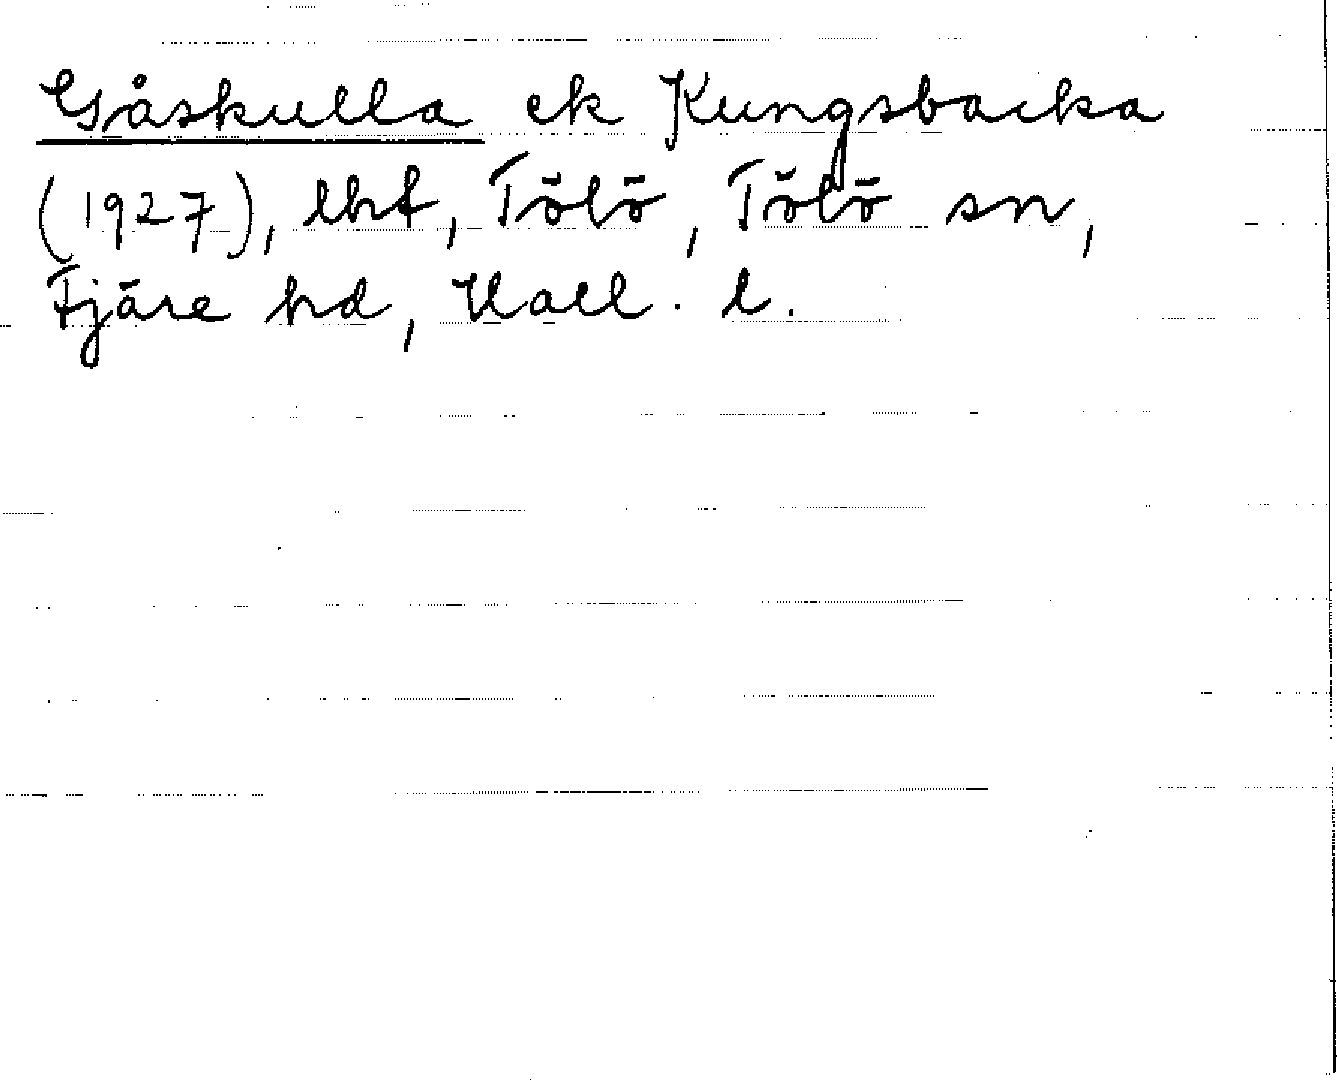 Gåskulla ek Kungsbacka
(1927), lht, Tölö, Tölö sn,
Fjäre hd, Hall. l.